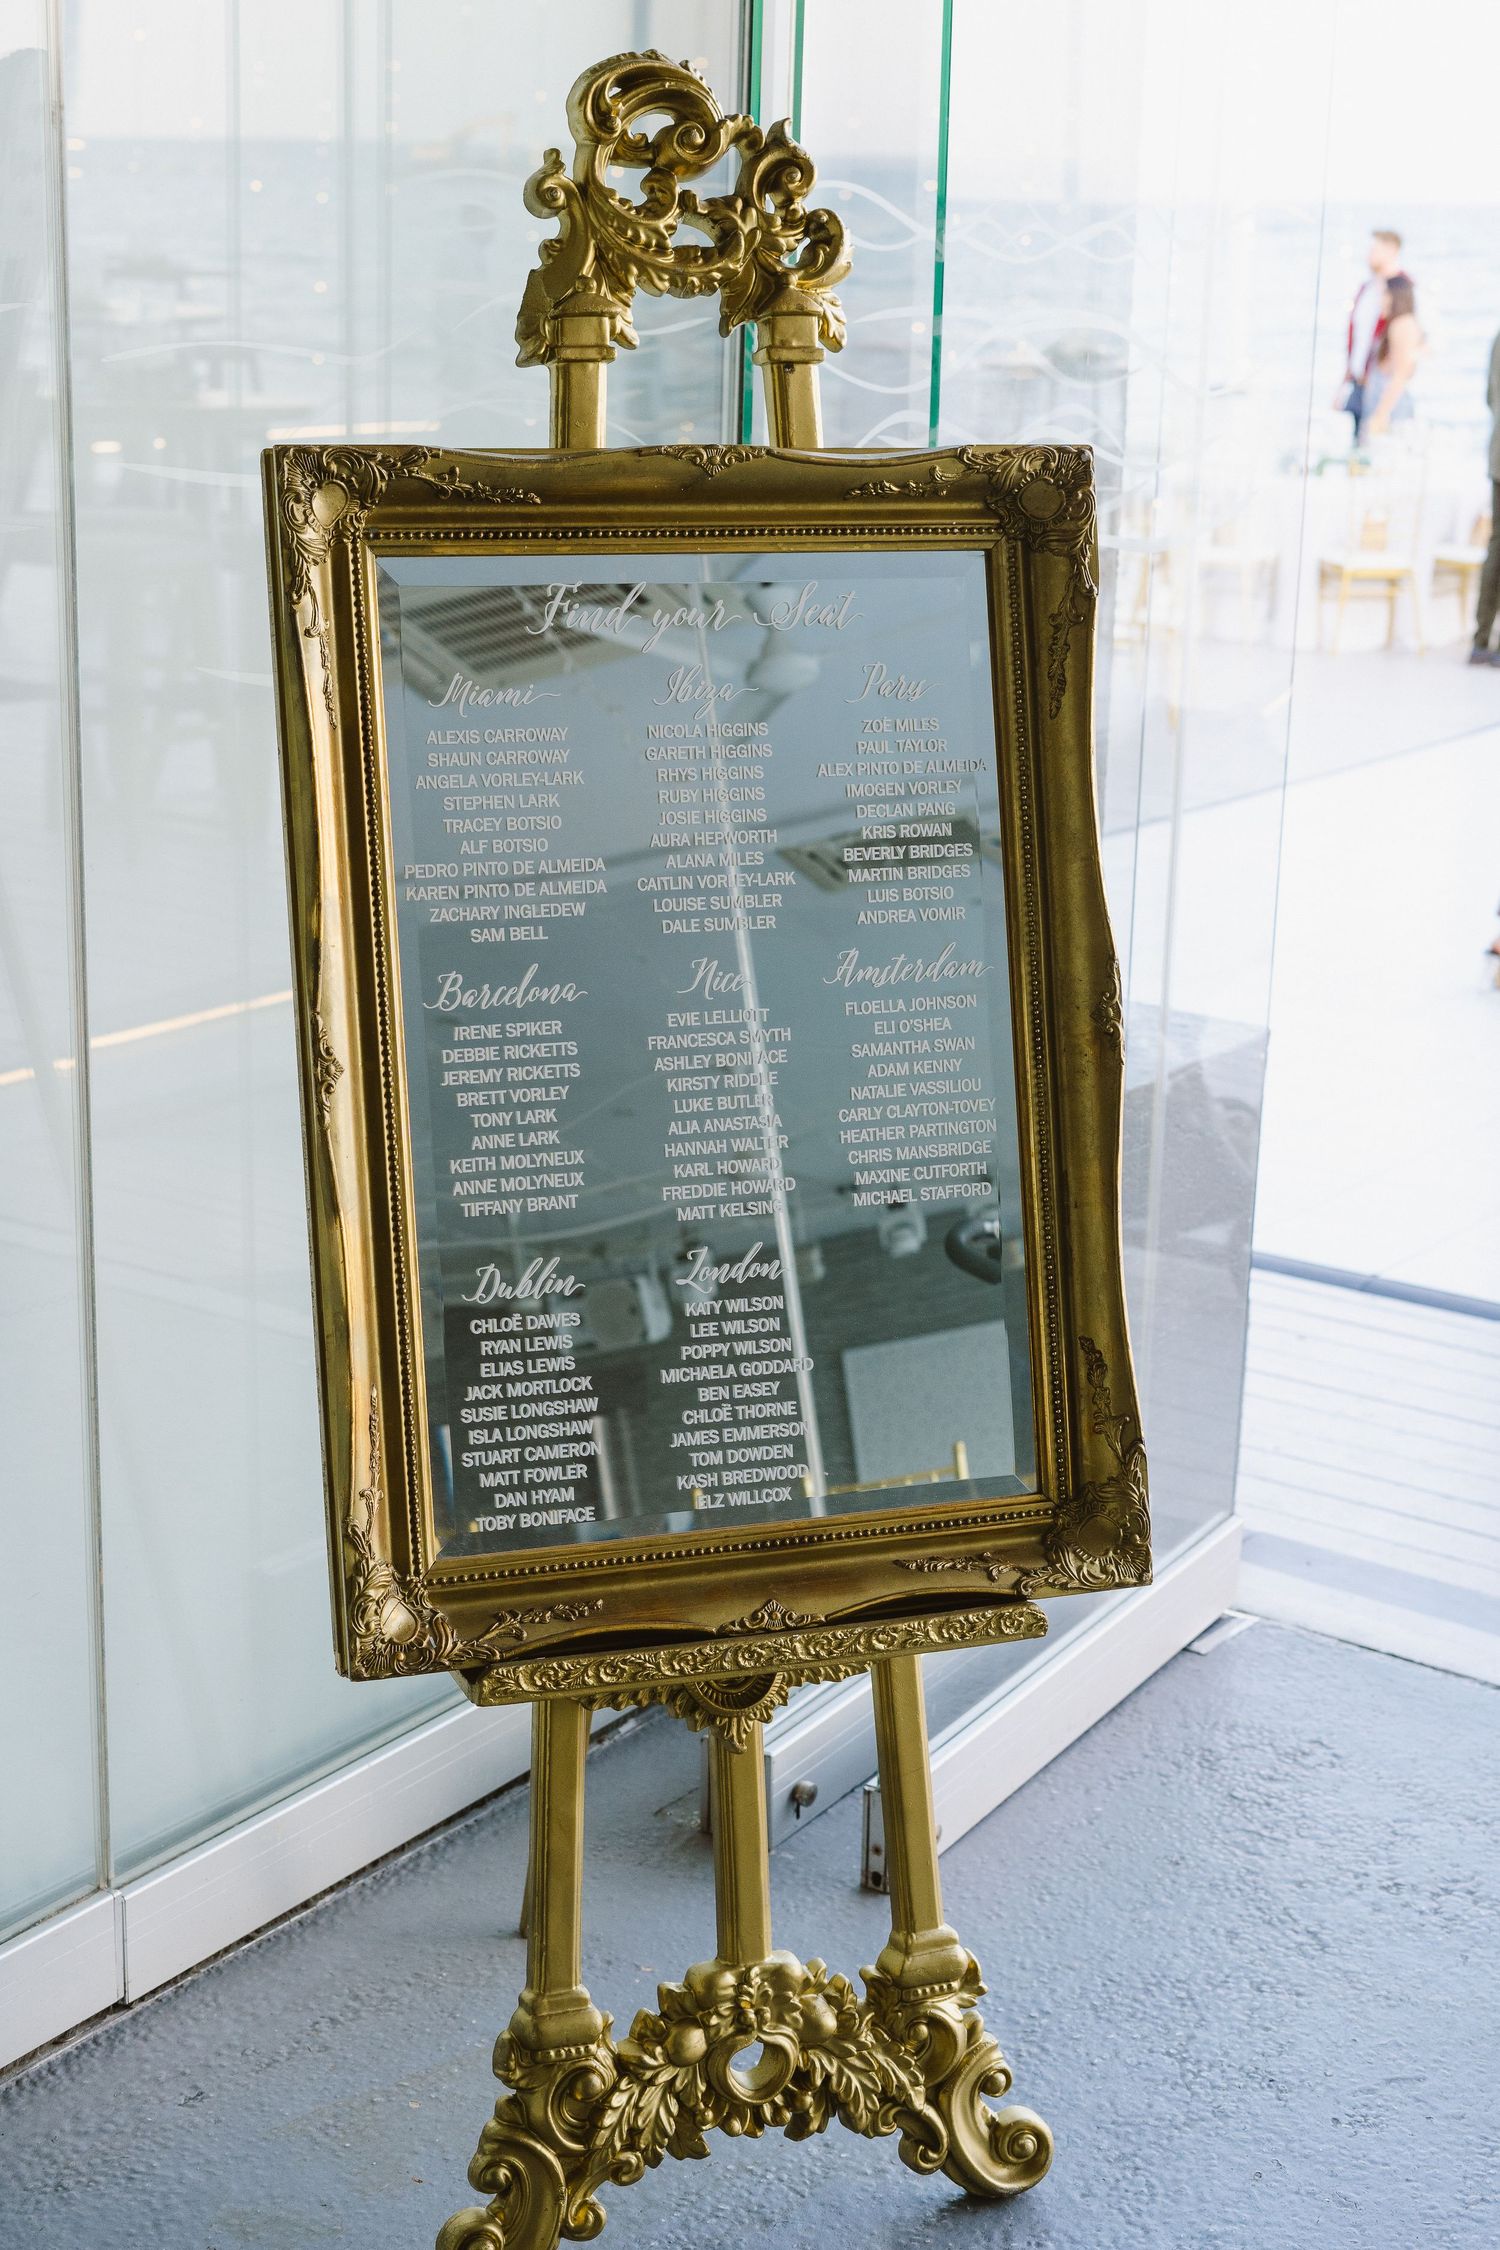 Find your Seat
Miami
ALEXIS CARROWAY
SHAUN CARROWAY
ANGELA VORLEY-LARK
STEPHEN LARK
TRACEY BOTSIO
ALF BOTSIO
PEDRO PINTO DE ALMEIDA
KAREN PINTO DE ALMEIDA
ZACHARY INGLEDEW
SAM BELL
Ibiza
NICOLA HIGGINS
GARETH HIGGINS
RHYS HIGGINS
RUBY HIGGINS
JOSIE HIGGINS
AURA HEPWORTH
ALANA MILES
CAITLIN VORLEY-LARK
LOUISE SUMBLER
DALE SUMBLER
Pary
ZOË MILES
PAUL TAYLOR
ALEX PINTO DE ALMEIDA
IMOGEN VORLEY
DECLAN PANG
KRIS ROWAN
BEVERLY BRIDGES
MARTIN BRIDGES
LUIS BOTSIO
ANDREA VOMIR
Barcelona
IRENE SPIKER
DEBBIE RICKETTS
JEREMY RICKETTS
BRETT VORLEY
TONY LARK
ANNE LARK
KEITH MOLYNEUX
ANNE MOLYNEUX
TIFFANY BRANT
Nice
EVIE LELLIOTT
FRANCESCA SMYTH
ASHLEY BONIFACE
KIRSTY RIDDLE
LUKE BUTLER
ALIA ANASTASIA
HANNAH WALTER
KARL HOWARD
FREDDIE HOWARD
MATT KELSING
Amsterdam
FLOELLA JOHNSON
ELI O'SHEA
SAMANTHA SWAN
ADAM KENNY
NATALIE VASSILIOU
CARLY CLAYTON-TOVEY
HEATHER PARTINGTON
CHRIS MANSBRIDGE
MAXINE CUTFORTH
MICHAEL STAFFORD
Dublin
CHLOË DAWES
RYAN LEWIS
ELIAS LEWIS
JACK MORTLOCK
SUSIE LONGSHAW
ISLA LONGSHAW
STUART CAMERON
MATT FOWLER
DAN HYAM
TOBY BONIFACE
London
KATY WILSON
LEE WILSON
POPPY WILSON
MICHAELA GODDARD
BEN EASEY
CHLOË THORNE
JAMES EMMERSON
TOM DOWDEN
KASH BREDWOOD
ELZ WILLCOX